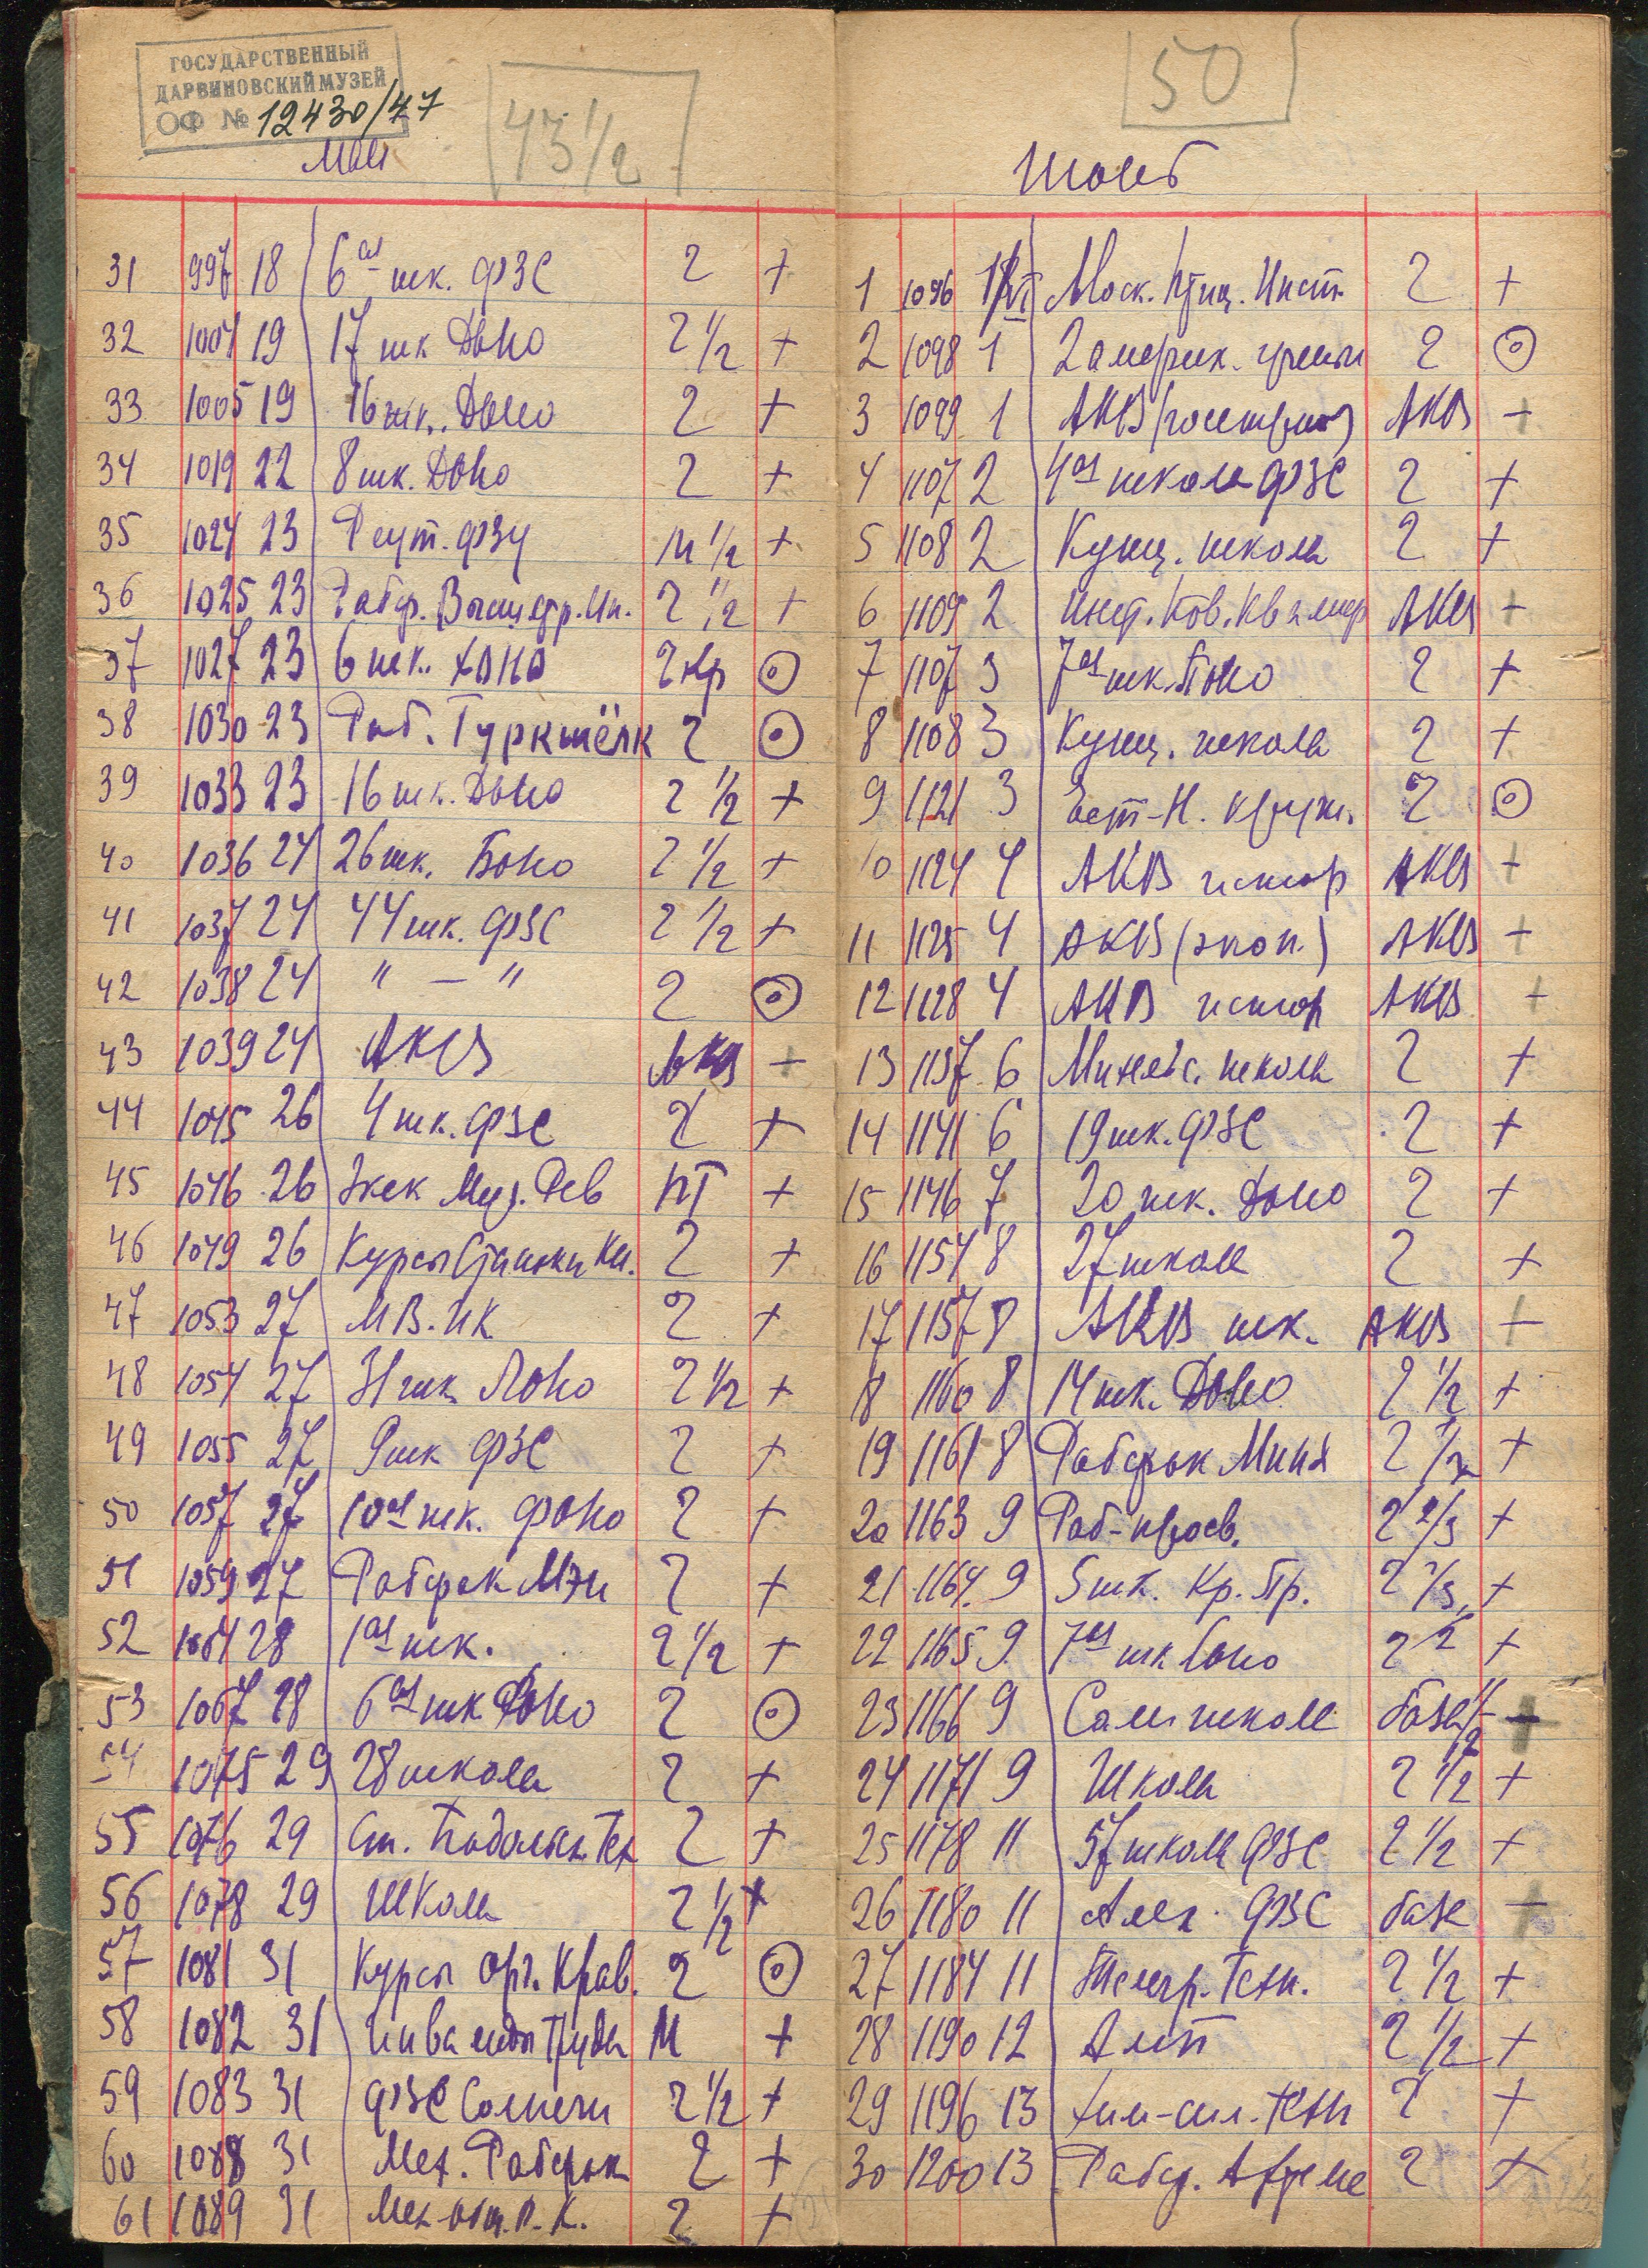 ГОСУДАРСТВЕННЫЙ
ДАРВИНОВСКИЙ МУЗЕЙ
ОФ № 12430/47
43 1/2
Май
31 997 18 6ая шк. ФЗС 2 +
32 1004 19 17 шк ДОНО 2 1/2 +
33 1005 19 16 шк. ДОНО 2 +
34 1019 22 8 шк. ДОНО 2 +
35 1024 23 Реут. ФЗУ М 1/2 +
36 1025 23 Рабф. 2 1/2 +
37 1027 23 6 шк. ХОНО 2 кр ⊙
38 1030 23 Раб. Туркшёлк 2 ⊙
39 1033 23 16 шк. ДОНО 2 1/2 +
40 1036 24 26 шк. БОНО 2 1/2 +
41 1037 24 44 шк. ФЗС 2 1/2 +
42 1038 24 " — " 2 ⊙
43 1039 24 АКВ АКВ +
44 1045 26 4 шк. ФЗС 2 +
45 1046 26 Экск Муз. Рев ПТ +
46 1049 26 Курсы 2 +
47 1053 27 МВ. ИК 2 +
48 1054 27 31 шк ЛОНО 2 1/2 +
49 1055 27 9 шк ФЗС 2 +
50 1057 27 10ая шк. ФОНО 2 +
51 1059 27 Рабфак МЭИ 2 +
52 1064 28 1ая шк. 2 1/2 +
53 1067 28 6ая шк ФОНО 2 ⊙
54 1075 29 28 школа 2 +
55 1076 29 Ст. Подольск. Тех 2 +
56 1078 29 Школа 2 1/2 +
57 1081 31 Курсы Орг. Крав. 2 ⊙
58 1082 31 Инвалиды Труда М +
59 1083 31 ФЗС Солнечн 2 1/2 +
60 1088 31 Мех. Рабфак 2 +
61 1089 31 2 +
50
Июнь
1 1096 1/VI Моск. Птиц. Инст. 2 +
2 1098 1 2 америк. группы 2 ⊙
3 1099 1 АКВ АКВ +
4 1107 2 4ая школа ФЗС 2 +
5 1108 2 Кунц. школа 2 +
6 1109 2 АКВ +
7 1107 3 7ая шк. БОНО 2 +
8 1108 3 Кунц. школа 2 +
9 1121 3 Ест-Н. кружк. 2 ⊙
10 1124 4 АКВ истор АКВ +
11 1125 4 АКВ (экон.) АКВ +
12 1128 4 АКВ истор АКВ +
13 1137 6 школа 2 +
14 1141 6 19 шк. ФЗС 2 +
15 1146 7 20 шк. ДОНО 2 +
16 1154 8 27 школа 2 +
17 1157 8 АКВ шк. АКВ +
18 1160 8 14 шк. ДОНО 2 1/2 +
19 1161 8 Рабфак 2 1/2 +
20 1163 9 Раб-просв. 2 2/3 +
21 1164 9 5 шк. Кр. Пр. 2 +
22 1165 9 7ая шк 2 +
23 1166 9 школа +
24 1171 9 Школа 2 1/2 +
25 1178 11 57 школа ФЗС 2 1/2 +
26 1180 11 ФЗС +
27 1184 11 Техн. 2 1/2 +
28 1190 12 2 1/2 +
29 1196 13 Хим-сил. техн 2 +
30 1200 13 Рабф. 2 +